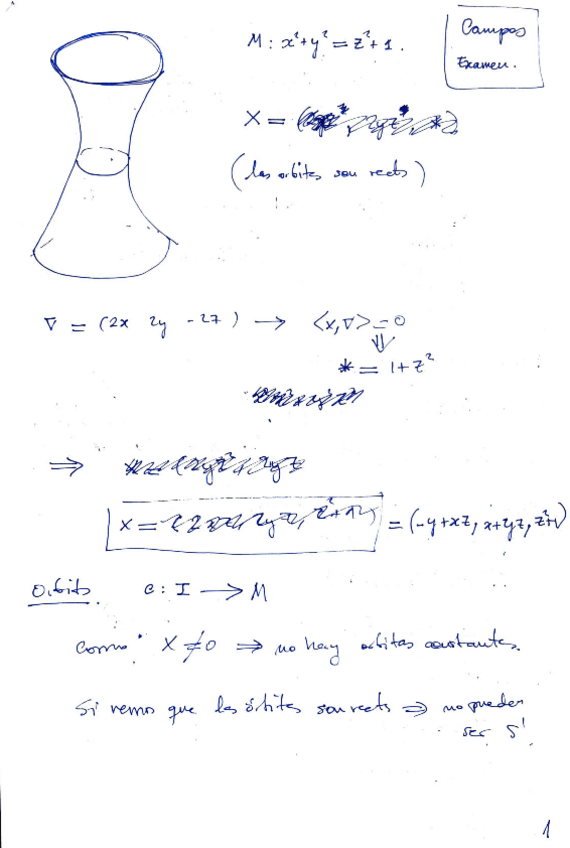 M: x²+y² = z²+1.
Campos
Examen.
X = (
(las orbitas son rects)
∇ = (2x 2y -2z) → <x,∇>=0
⇓
* = 1+z²
⇒
X = = (-y+xz, x+yz, z²+1)
Orbits. c: I → M
Como X ≠ 0 ⇒ no hay orbitas constantes.
Si vemos que las órbitas son rects ⇒ no pueden
ser S¹
1